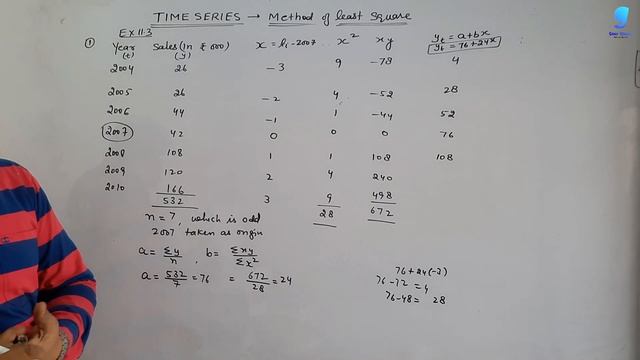 TIME SERIES → Method of least Square
Ex 11.3
① Year (t) Sales (In ₹ 000) (y) x = ti - 2007 x² xy yt = a+bx
yt = 76+24x
2004 26 -3 9 -78 4
2005 26 -2 4 -52 28
2006 44 -1 1 -44 52
2007 42 0 0 0 76
2008 108 1 1 108 108
2009 120 2 4 240
2010 166 3 9 498
532 28 672
n = 7, which is odd
2007 taken as origin
a = Σy/n , b = Σxy/Σx²
a = 532/7 = 76 = 672/28 = 24
76 + 24(-3)
76 - 72 = 4
76 - 48 = 28